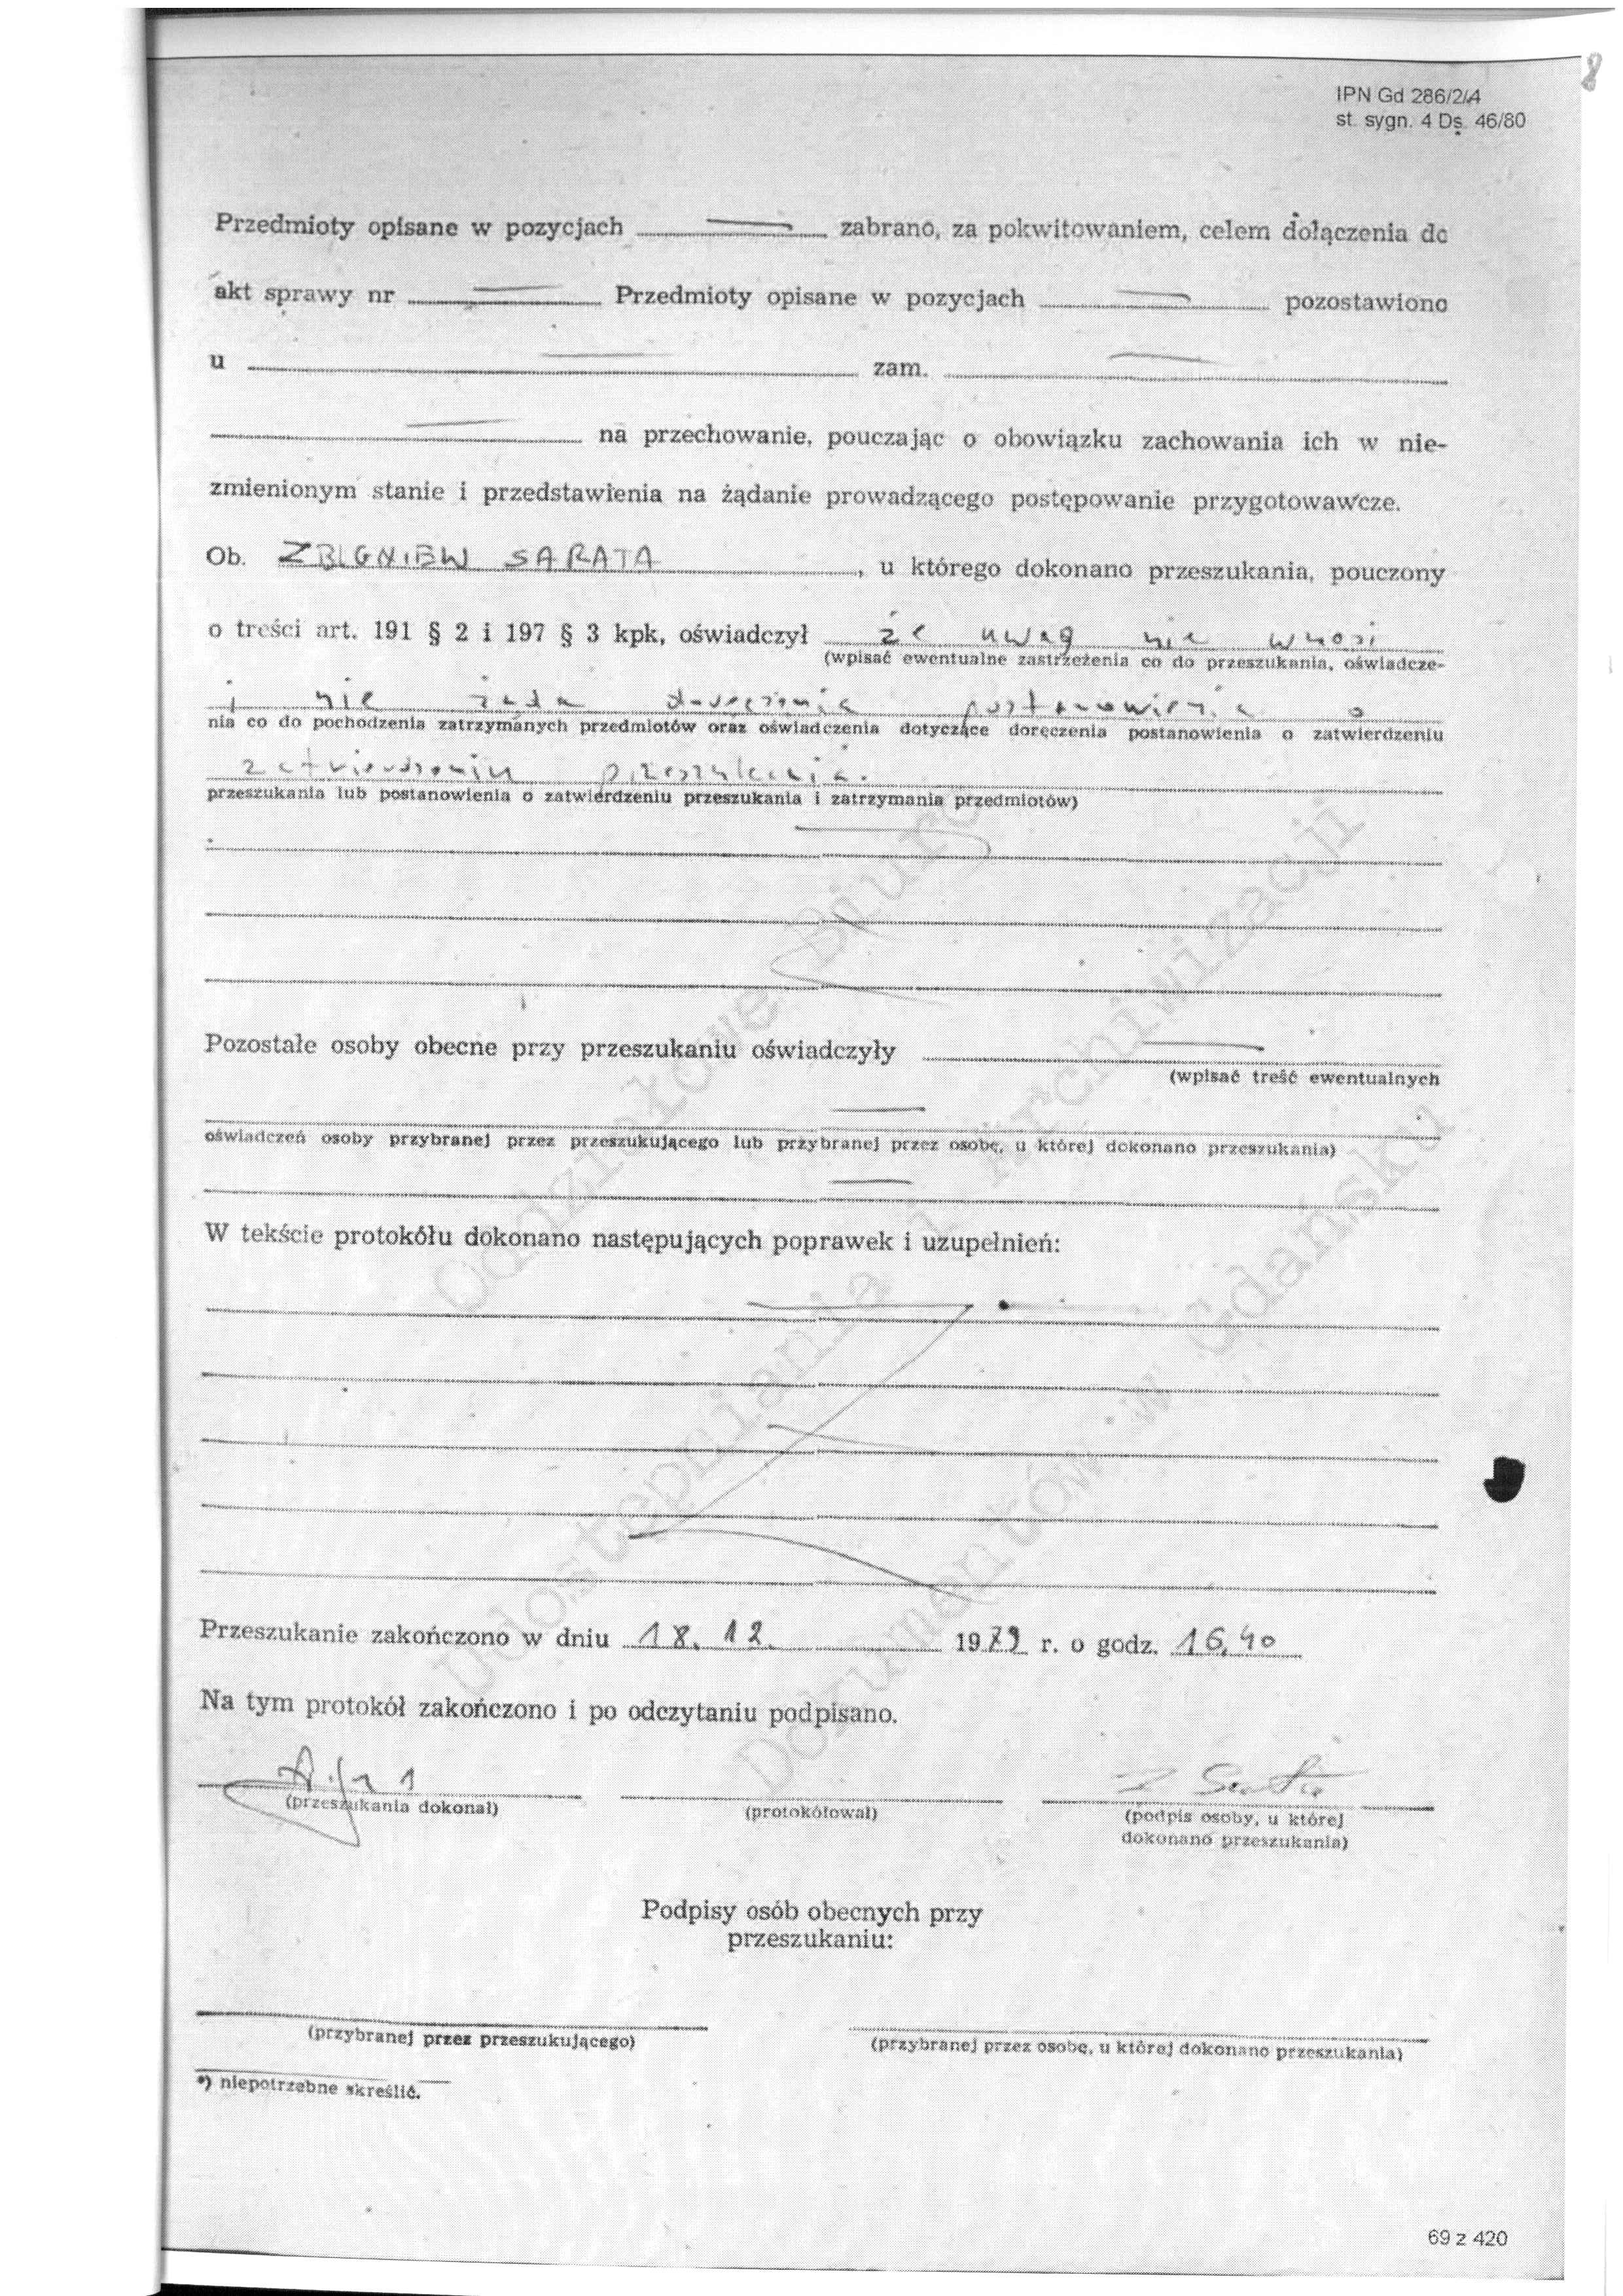 8
IPN Gd 286/2/4
st. sygn. 4 Ds. 46/80
Przedmioty opisane w pozycjach zabrano, za pokwitowaniem, celem dołączenia do
akt sprawy nr Przedmioty opisane w pozycjach pozostawiono
u zam.
na przechowanie, pouczając o obowiązku zachowania ich w nie-
zmienionym stanie i przedstawienia na żądanie prowadzącego postępowanie przygotowawcze.
Ob. ZBIGNIEW SARATA, u którego dokonano przeszukania, pouczony
o treści art. 191 § 2 i 197 § 3 kpk, oświadczył że uwag nie wnosi
(wpisać ewentualne zastrzeżenia co do przeszukania, oświadcze-
i nie żąda doręczenia postanowienia o
nia co do pochodzenia zatrzymanych przedmiotów oraz oświadczenia dotyczące doręczenia postanowienia o zatwierdzeniu
zatwierdzeniu przeszukania.
przeszukania lub postanowienia o zatwierdzeniu przeszukania i zatrzymania przedmiotów)
Pozostałe osoby obecne przy przeszukaniu oświadczyły
(wpisać treść ewentualnych
oświadczeń osoby przybranej przez przeszukującego lub przybranej przez osobę, u której dokonano przeszukania)
W tekście protokółu dokonano następujących poprawek i uzupełnień:
Przeszukanie zakończono w dniu 18. 12. 1979 r. o godz. 16,40
Na tym protokół zakończono i po odczytaniu podpisano.
(przeszukania dokonał) (protokółował) (podpis osoby, u której
dokonano przeszukania)
Podpisy osób obecnych przy
przeszukaniu:
(przybranej przez przeszukującego) (przybranej przez osobę, u której dokonano przeszukania)
*) niepotrzebne skreślić.
Oddziałowe Biuro
Udostępniania i Archiwizacji
Dokumentów w Gdańsku
69 z 420